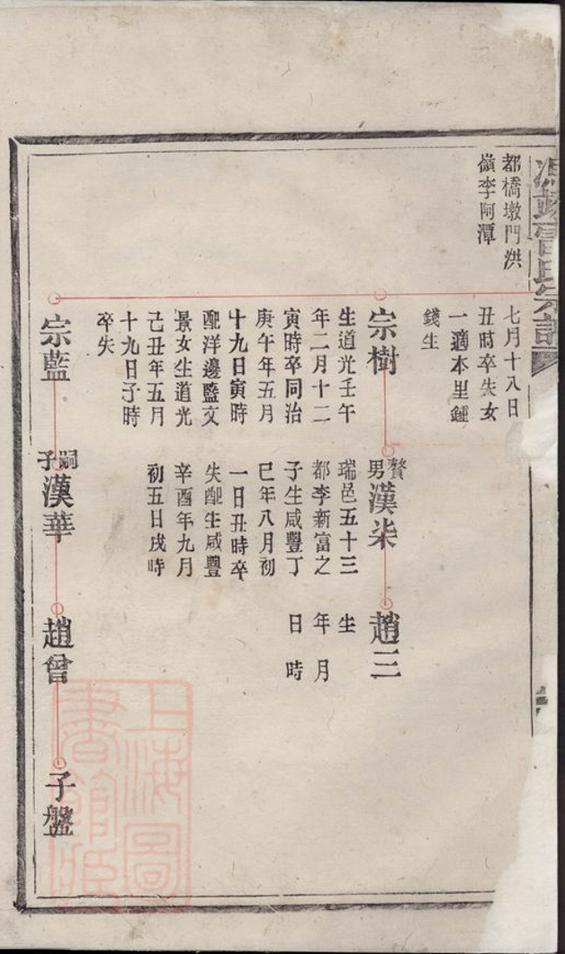 曹氏宗譜
都橋墩門洪
嶺李阿潭
七月十八日
丑時卒失女
一適本里鍾
錢生
宗樹
生道光壬午
年二月十二
寅時卒同治
庚午年五月
十九日寅時
配洋邊藍文
景女生道光
己丑年五月
十九日子時
卒失
贅男漢柒
瑞邑五十三
都李新富之
子生咸豐丁
巳年八月初
一日丑時卒
失配生咸豐
辛酉年九月
初五日戌時
趙三
生
年月
日時
宗藍
嗣子漢華
趙曾
子盤
上海圖書館藏